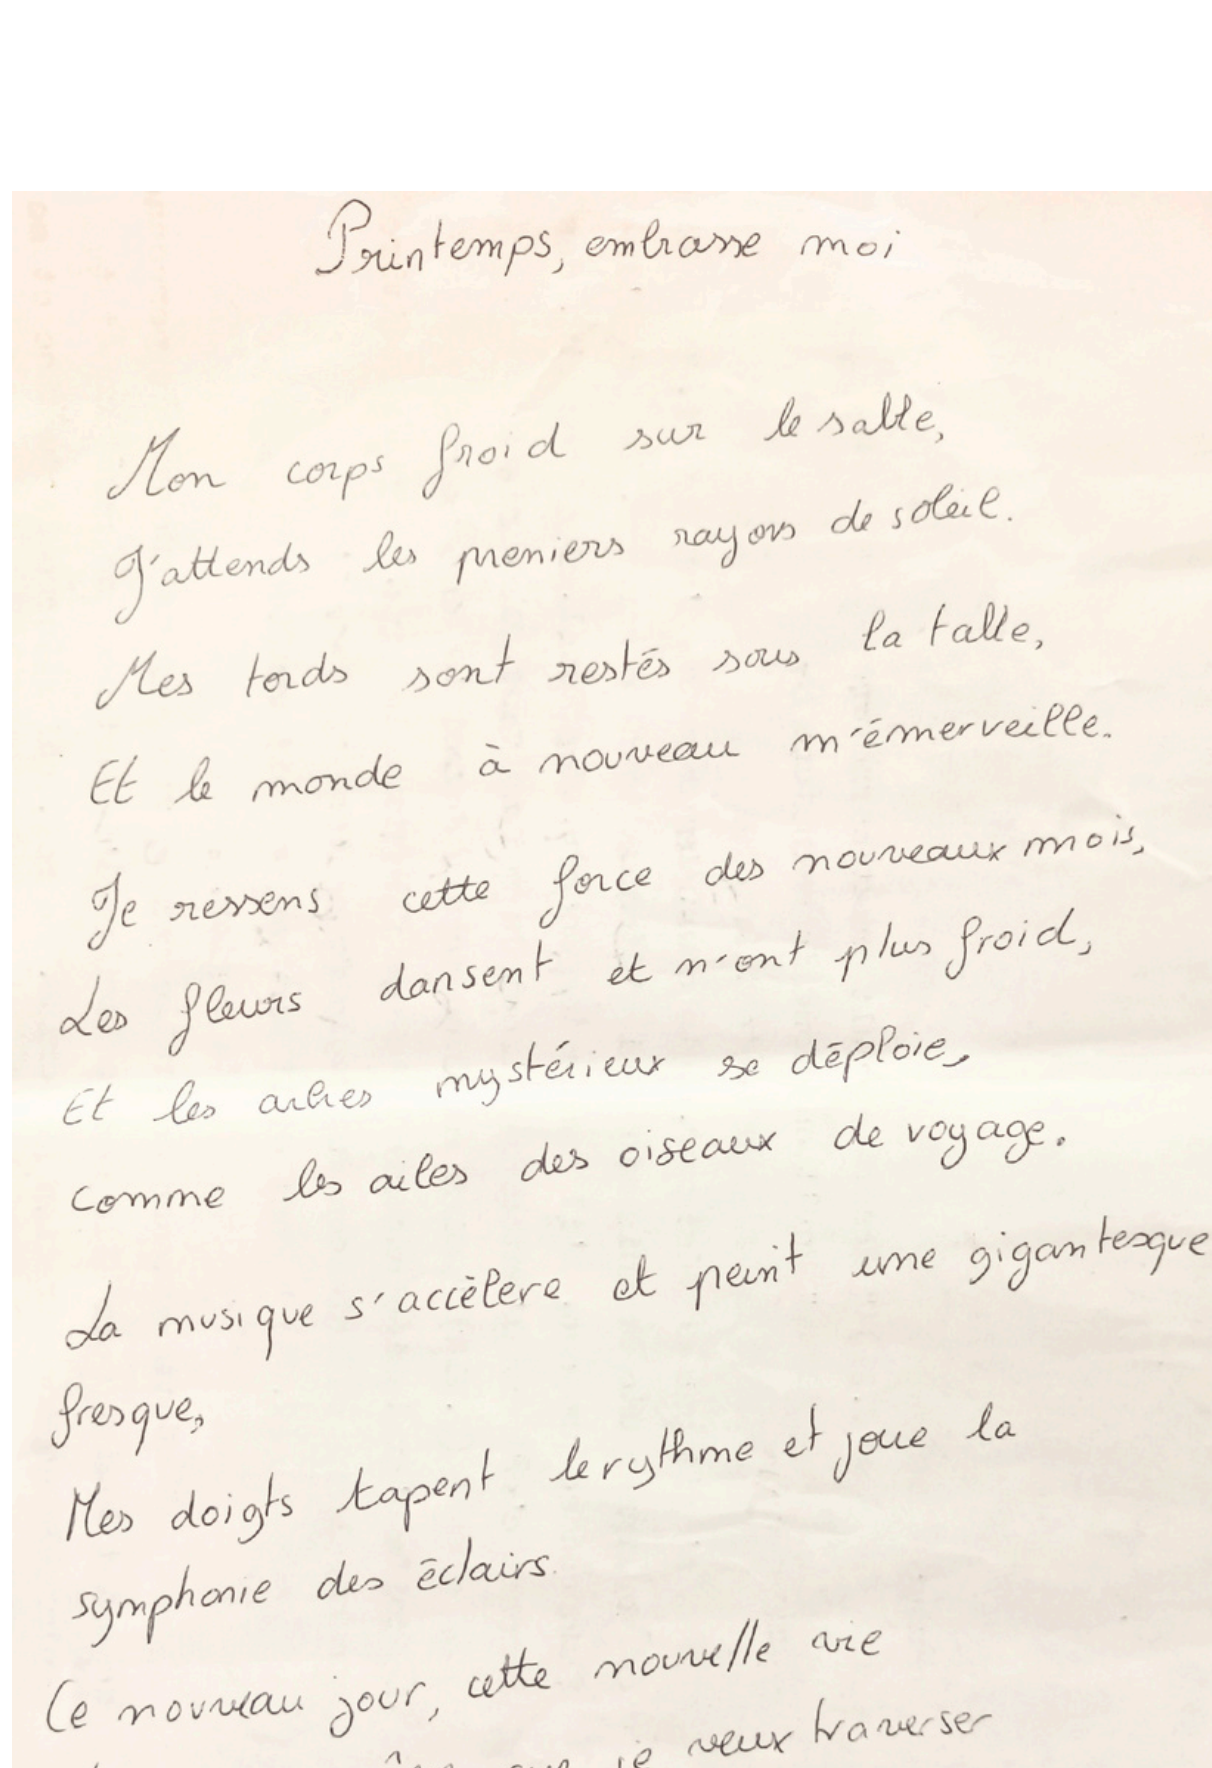 Printemps, embrasse moi
Mon corps froid sur le sable,
J'attends les premiers rayons de soleil.
Mes tords sont restés sous la table,
Et le monde à nouveau m'émerveille.
Je ressens cette force des nouveaux mois,
Les fleurs dansent et n'ont plus froid,
Et les arbres mystérieux se déploie,
comme les ailes des oiseaux de voyage.
La musique s'accèlere et peint une gigantesque
fresque,
Mes doigts tapent le rythme et joue la
symphonie des éclairs.
Ce nouveau jour, cette nouvelle vie
je veux traverser